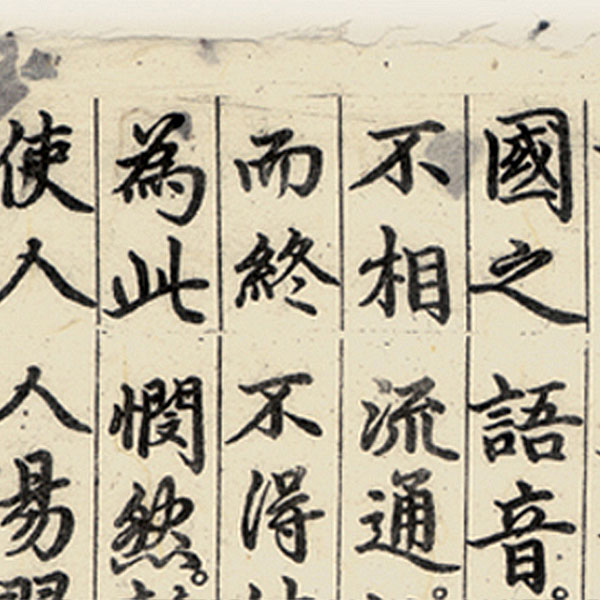 國之語音。
不相流通
而終不得
為此憫然。
使人人易